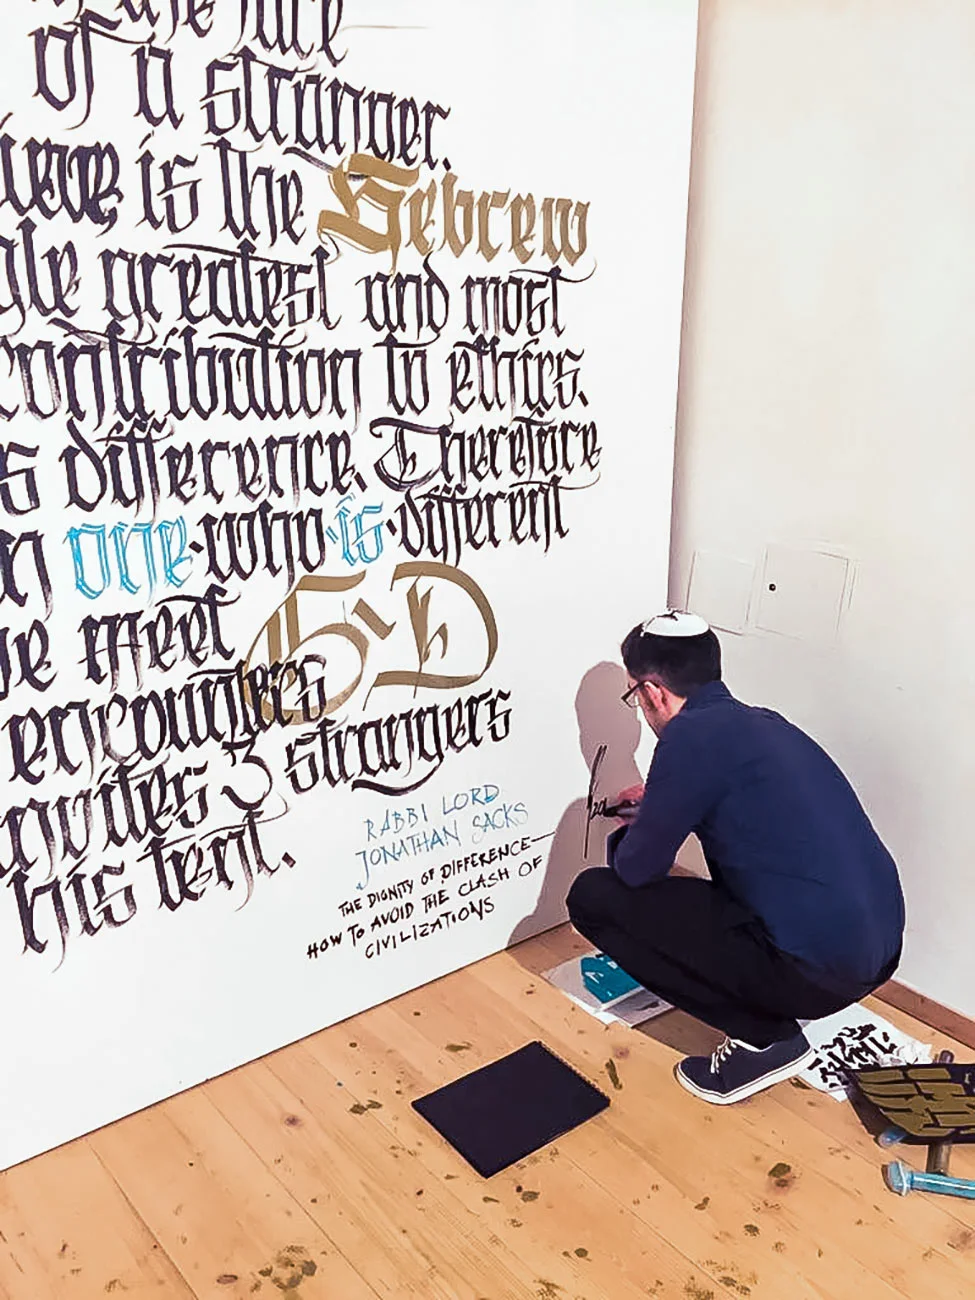 of a stranger.
is the Hebrew
greatest and most
contribution to ethics.
difference. Therefore
one who is different
meet G-D
encounters
invites 3 strangers
his tent.
RABBI LORD
JONATHAN SACKS
THE DIGNITY OF DIFFERENCE—
HOW TO AVOID THE CLASH OF
CIVILIZATIONS